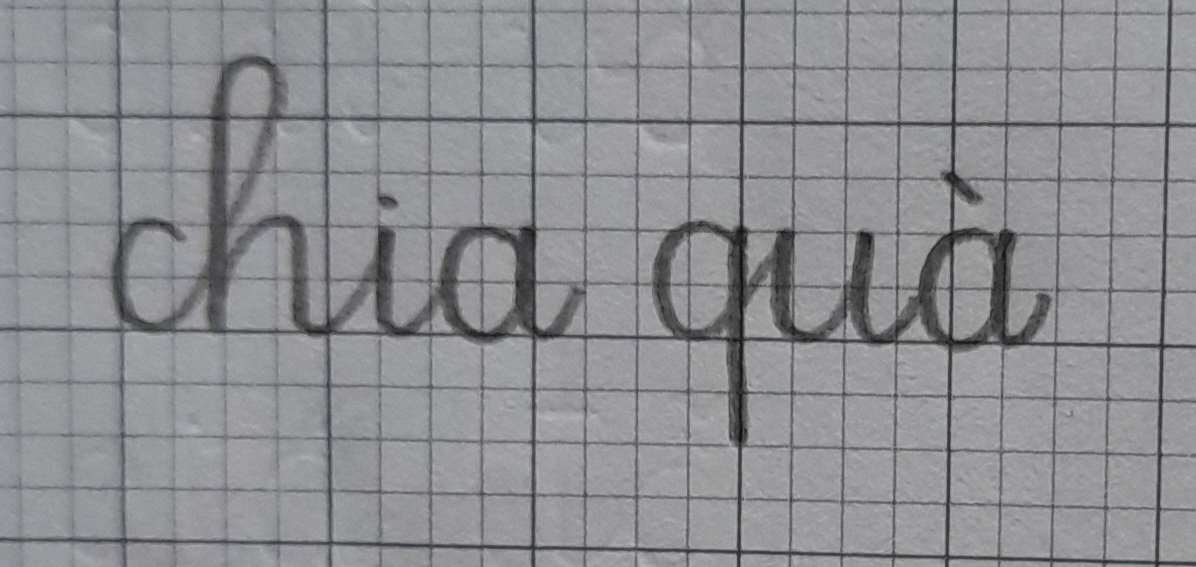 chia quà